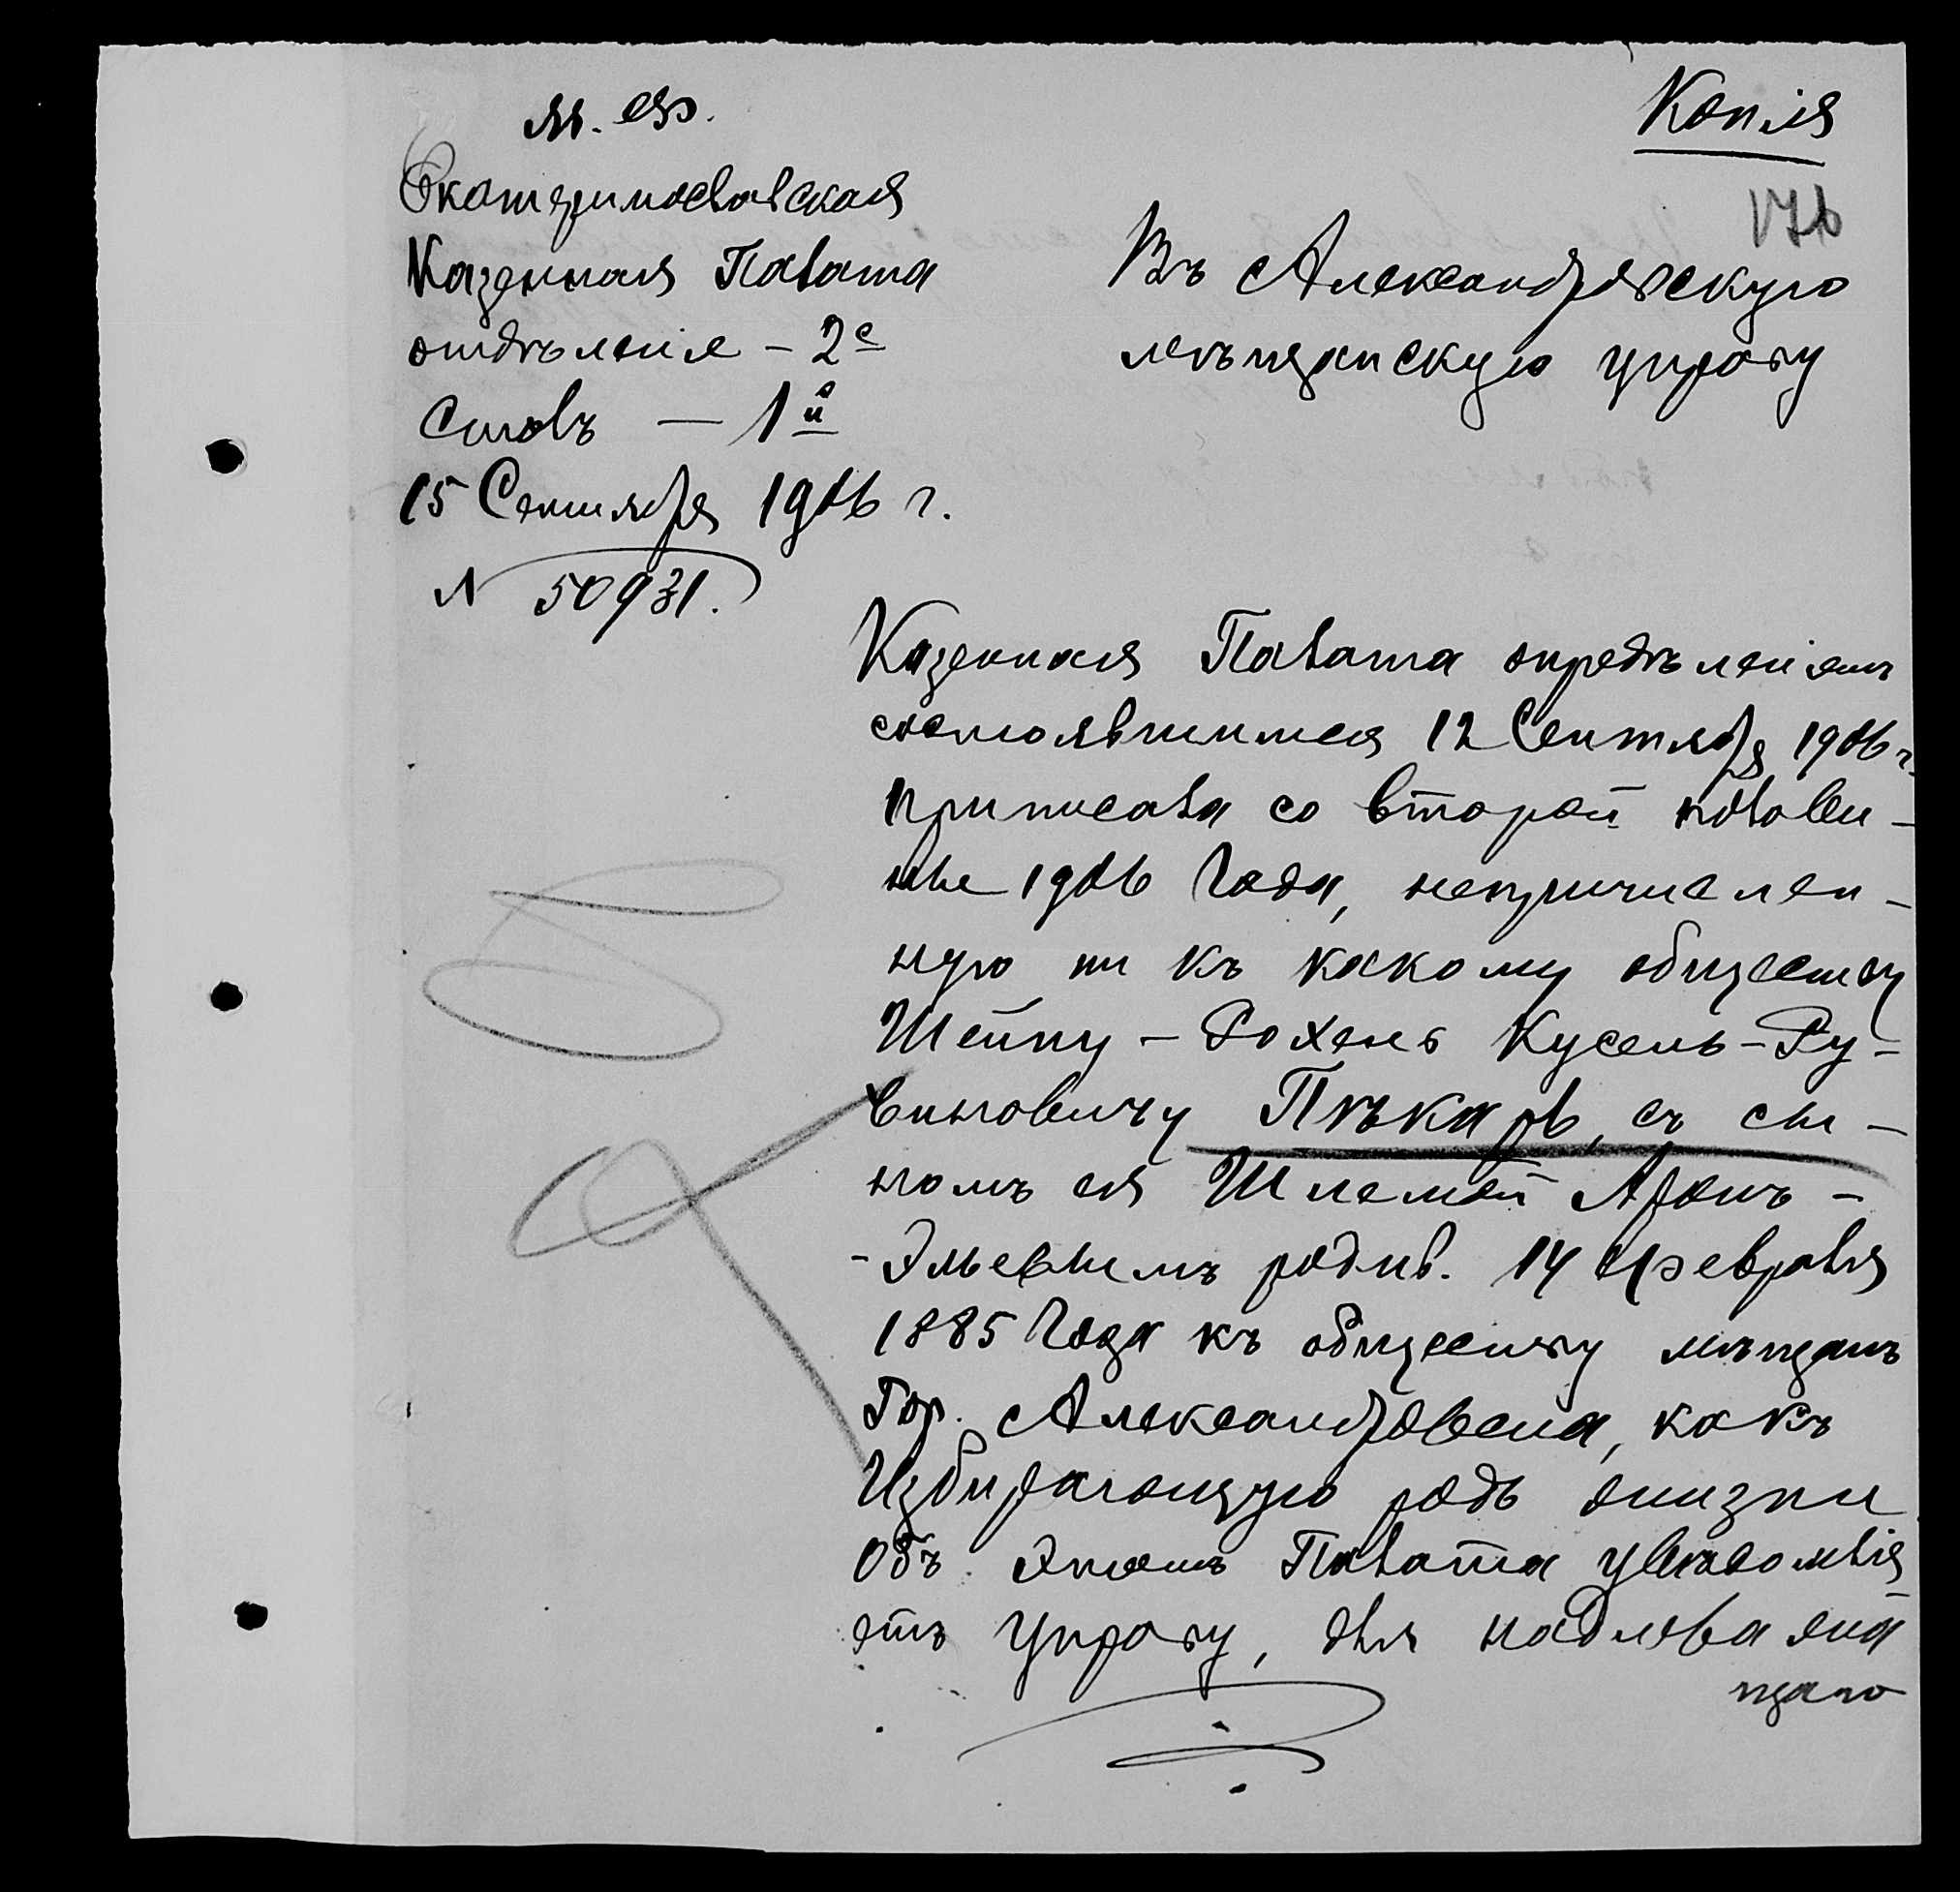 М. Ф.
Копія
176
Екатеринославская
Казенная Палата
отдѣленіе – 2е
Столъ — 1й
15 Сентября 1906 г.
N 50931.
Въ Александровскую
мѣщанскую управу
Казенная Палата опредѣленіемъ
состоявшимся 12 Сентября 1906 г.
причислала со второй полови-
ны 1906 года, непричислен-
ную ни къ какому обществу
Шейну-Рохень Кусель-Ру-
виновичу Пѣкарь, съ сы-
номъ ея Шлемой Аронъ-
-Эльевымъ родив. 14 Февраля
1885 года къ обществу мѣщанъ
Гор. Александровска, какъ
Избирающую родъ жизни
Объ этомъ Палата увѣдомля
етъ Управу, для надлежа
щаго